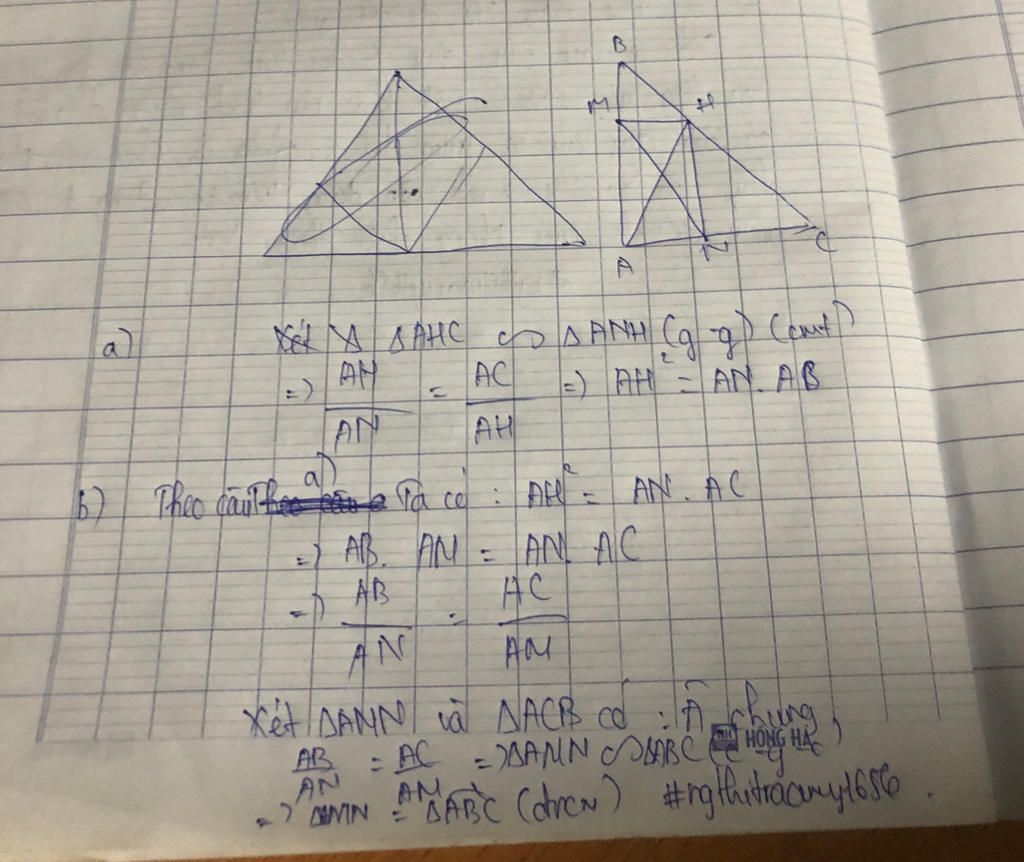 B
M H
A N C
a) Xét △AHC ∽ △ANH (g-g) (cmt)
=) AH/AN = AC/AH =) AH² = AN. AB
b) Theo câu a) Ta có : AH² = AN . AC
=) AB. AM = AN. AC
=) AB/AN = AC/AM
Xét △AMN và △ACB có : Â chung,
AB/AN = AC/AM =) △AMN ∽ △ABC
HỒNG HÀ
=) △MN = △ABC (đpcm) #ngthitracamy1686.